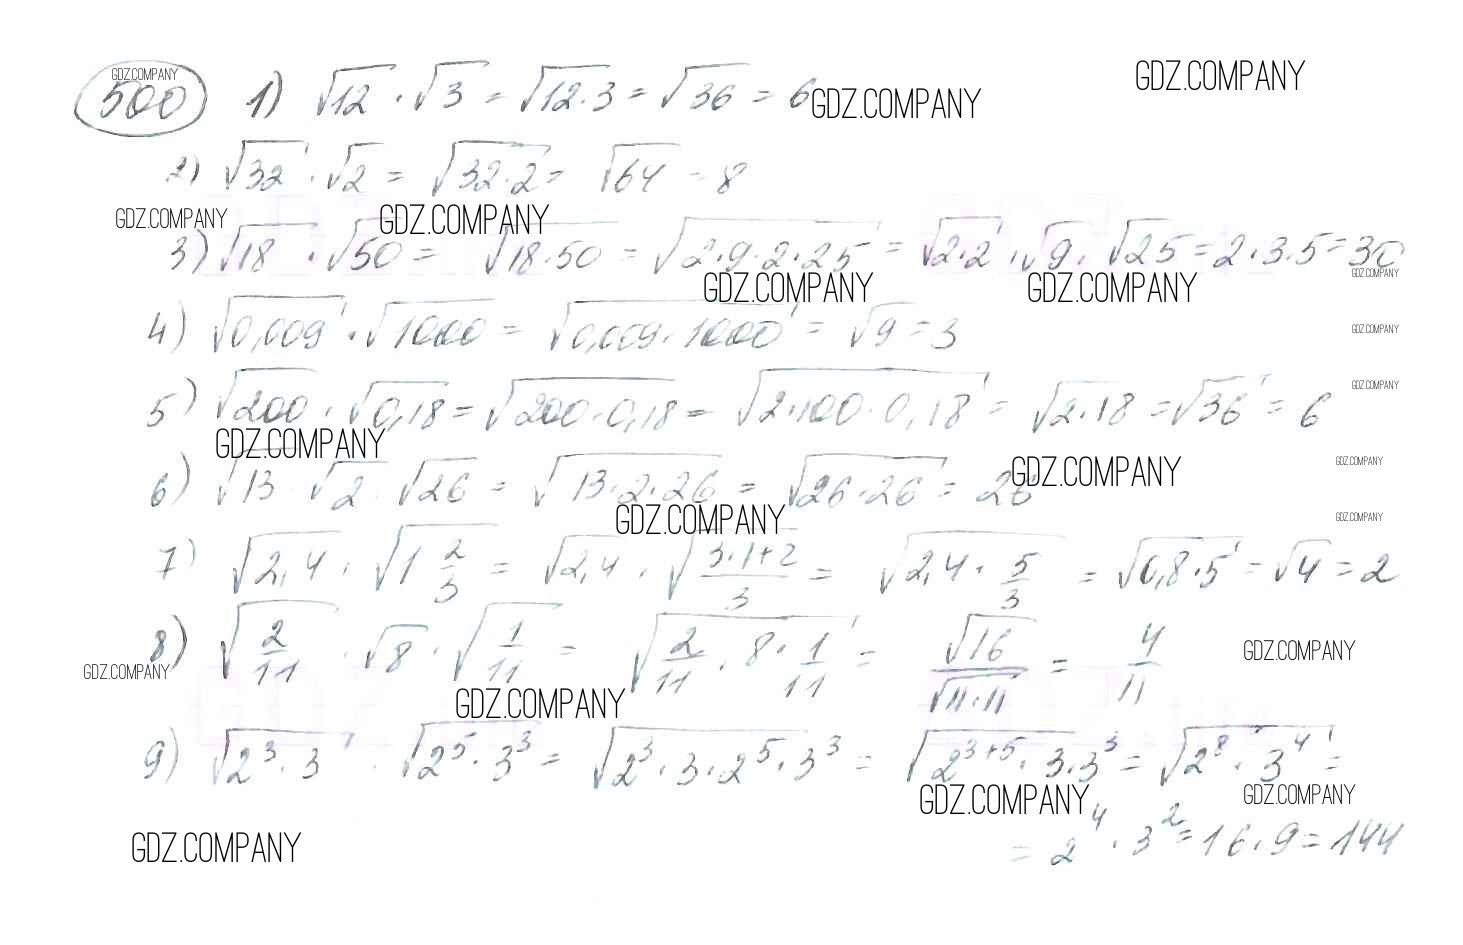 GDZ.COMPANY
500 1) √12 · √3 = √12·3 = √36 = 6 GDZ.COMPANY GDZ.COMPANY
2) √32 · √2 = √32·2 = √64 = 8
GDZ.COMPANY GDZ.COMPANY
3) √18 · √50 = √18·50 = √2·9·2·25 = √2·2 · √9 · √25 = 2·3·5 = 30
GDZ.COMPANY GDZ.COMPANY GDZ.COMPANY
4) √0,009 · √1000 = √0,009·1000 = √9 = 3 GDZ.COMPANY
GDZ.COMPANY
5) √200 · √0,18 = √200·0,18 = √2·100·0,18 = √2·18 = √36 = 6
GDZ.COMPANY GDZ.COMPANY GDZ.COMPANY
6) √13 · √2 · √26 = √13·2·26 = √26·26 = 26
GDZ.COMPANY GDZ.COMPANY
7) √2,4 · √1 2/3 = √2,4 · √(3·1+2)/3 = √2,4 · 5/3 = √0,8·5 = √4 = 2
8) √2/11 · √8 · √1/11 = √2/11 · 8 · 1/11 = √16/√11·11 = 4/11 GDZ.COMPANY
GDZ.COMPANY GDZ.COMPANY
9) √2³·3 · √2⁵·3³ = √2³·3·2⁵·3³ = √2³⁺⁵·3·3³ = √2⁸·3⁴ =
GDZ.COMPANY GDZ.COMPANY
= 2⁴·3² = 16·9 = 144
GDZ.COMPANY